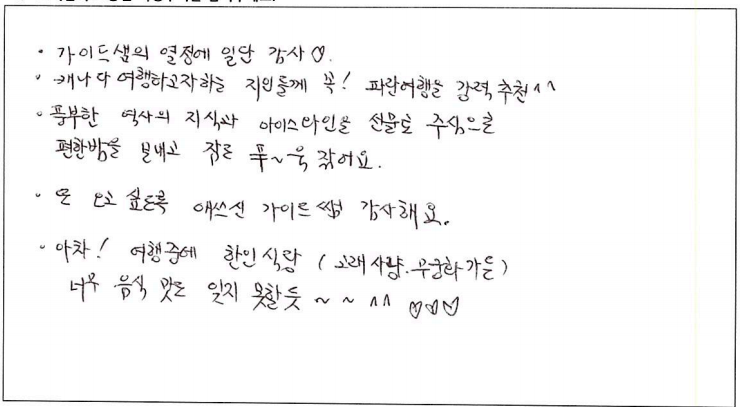 · 가이드샘의 열정에 일단 감사♡.
· 캐나다여행하고자하는 지인들께 꼭! 파란여행을 강력추천^^
· 풍부한 역사의 지식과 아이스와인을 선물로 주심으로
편한밤을 보내고 잠도 푸~욱 잤어요.
· 또 오고 싶도록 애쓰신 가이드쌤 감사해요.
· 아차! 여행중에 한인식당 (고래사냥.무궁화가든)
너무 음식 맛도 잊지 못할듯 ~ ~ ^^ ♡♡♡